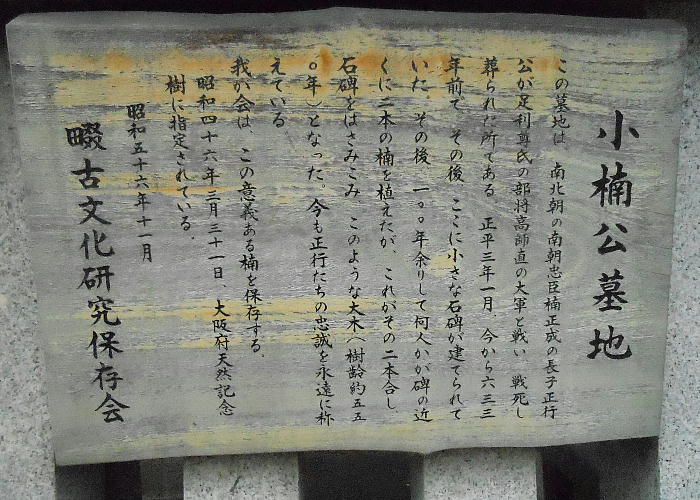 小楠公墓地
この墓地は 南北朝の南朝忠臣楠正成の長子正行
公が足利尊氏の部将高師直の大軍と戦い 戦死し
葬られた所である 正平三年一月、今から六三三
年前で その後 ここに小さな石碑が建てられて
いた。その後、一〇〇年余りして何人かが碑の近
くに二本の楠を植えたが、これがその二本合し
石碑をはさみこみ このような大木（樹齢約五五
〇年）となった。今も正行たちの忠誠を永遠に称
えている
我が会は この意義ある楠を保存する、
昭和四十六年三月三十一日、大阪府天然記念
樹に指定されている、
昭和五十六年十一月
畷古文化研究保存会